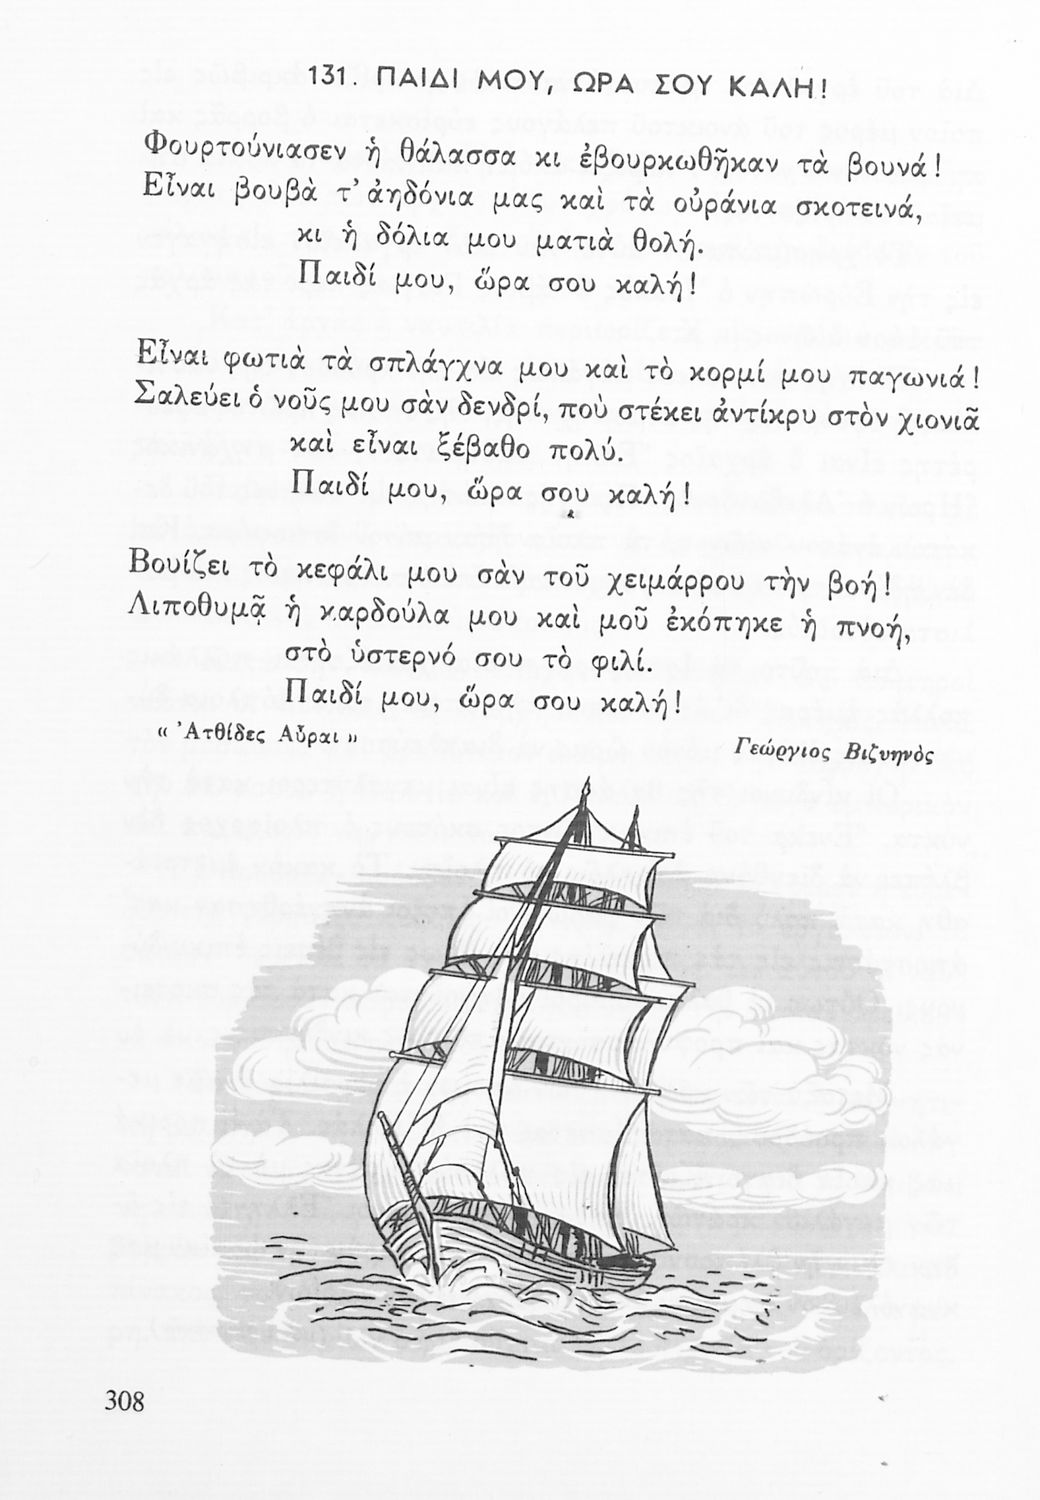 131. ΠΑΙΔΙ ΜΟΥ, ΩΡΑ ΣΟΥ ΚΑΛΗ!
Φουρτούνιασεν ἡ θάλασσα κι ἐβουρκωθῆκαν τὰ βουνά!
Εἶναι βουβὰ τ' ἀηδόνια μας καὶ τὰ οὐράνια σκοτεινά,
κι ἡ δόλια μου ματιὰ θολή.
Παιδί μου, ὥρα σου καλή!
Εἶναι φωτιὰ τὰ σπλάγχνα μου καὶ τὸ κορμί μου παγωνιά!
Σαλεύει ὁ νοῦς μου σὰν δενδρί, ποὺ στέκει ἀντίκρυ στὸν χιονιᾶ
καὶ εἶναι ξέβαθο πολύ.
Παιδί μου, ὥρα σου καλή!
Βουίζει τὸ κεφάλι μου σὰν τοῦ χειμάρρου τὴν βοή!
Λιποθυμᾷ ἡ καρδούλα μου καὶ μοῦ ἐκόπηκε ἡ πνοή,
στὸ ὑστερνό σου τὸ φιλί.
Παιδί μου, ὥρα σου καλή!
« Ἀτθίδες Αὖραι »
Γεώργιος Βιζυηνὸς
308